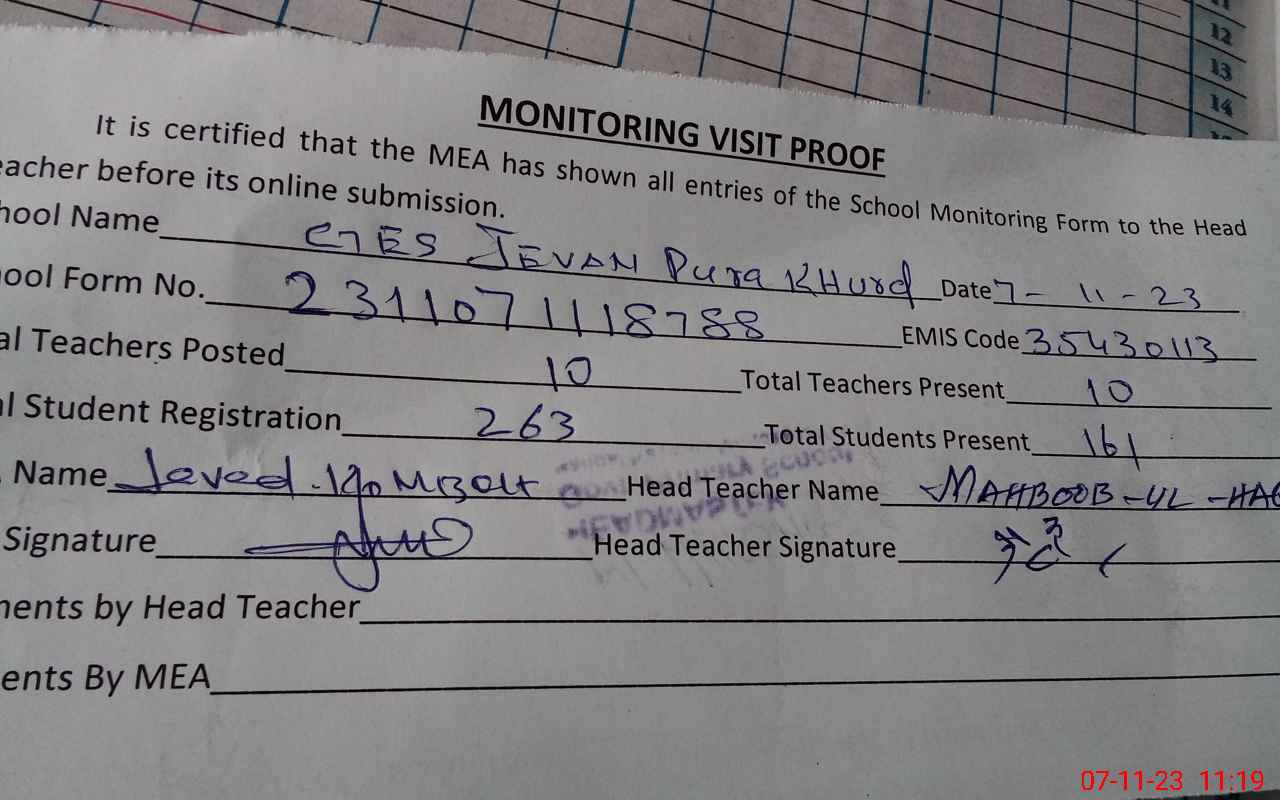 12
13
14
MONITORING VISIT PROOF
It is certified that the MEA has shown all entries of the School Monitoring Form to the Head
eacher before its online submission.
hool Name GES JEVAN Pura KHurd Date 7-11-23
ool Form No. 2311071118788 EMIS Code 35430113
al Teachers Posted 10 Total Teachers Present 10
al Student Registration 263 Total Students Present 161
Name Javed Head Teacher Name MAHBOOB-UL-HAQ
Signature Head Teacher Signature
ments by Head Teacher
ents By MEA
07-11-23 11:19